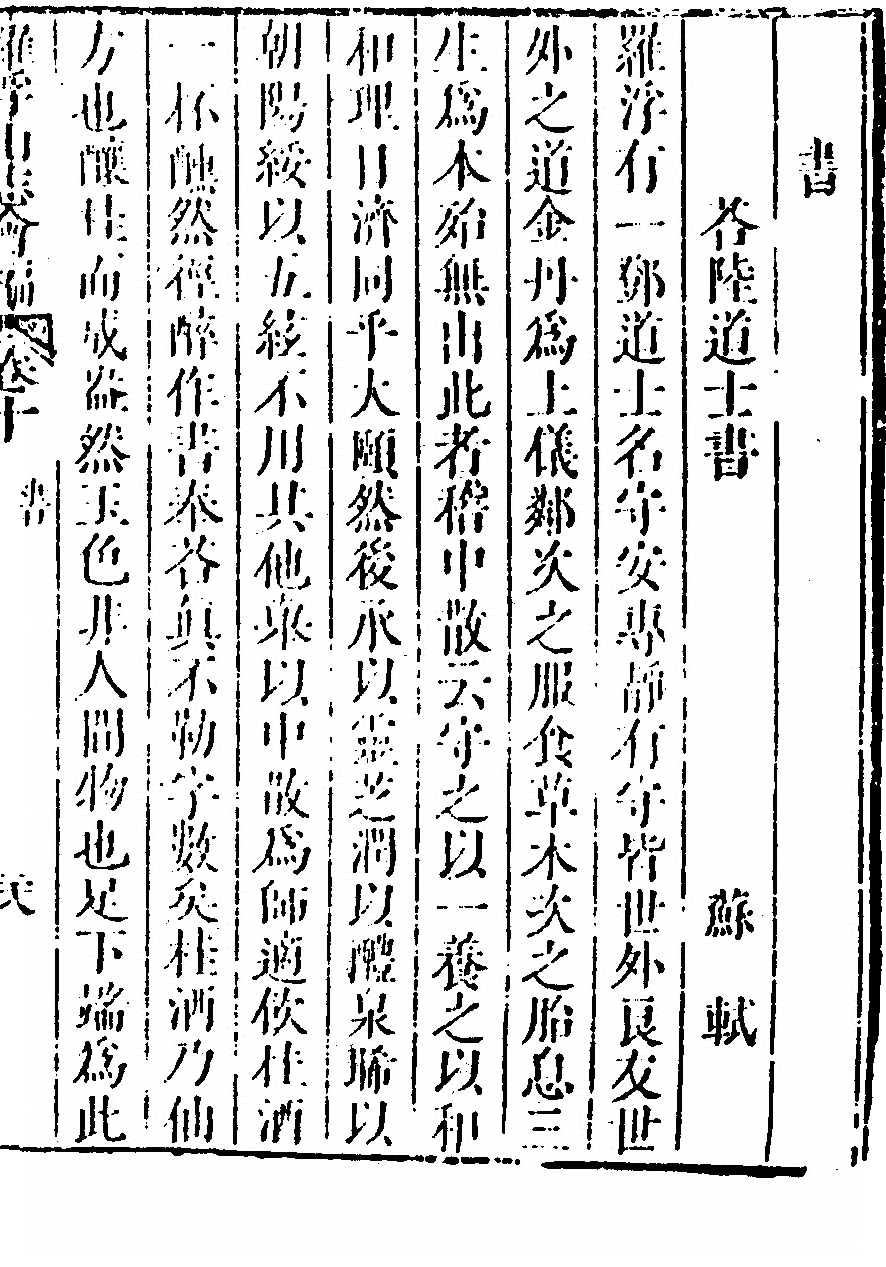 書
答陸道士書 蘇軾
羅浮有一鄧道士名守安專靜有守皆世外良友世
外之道金丹爲上儀鄰次之服食草木次之胎息三
生爲本殆無出此者嵇中散云守之以一養之以和
和理日濟同乎大順然後承以靈芝潤以醴泉晞以
朝陽綏以五絃不用其他衆以中散爲師適飲桂酒
一杯醺然徑醉作書奉答眞不勒字數矣桂酒乃仙
方也釀桂而成盎然玉色非人間物也足下端爲此
羅浮山志會編 卷十 書